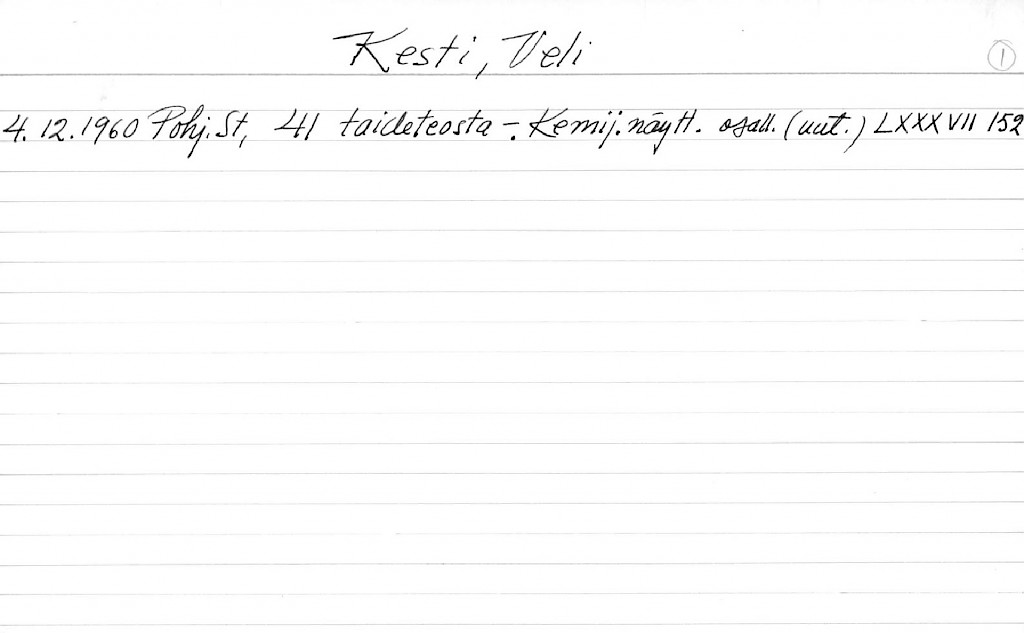 Kesti, Veli
1
4.12.1960 Pohj.St, 41 taideteosta -. Kemij. näytt. osall. (uut.) LXXXVII 152